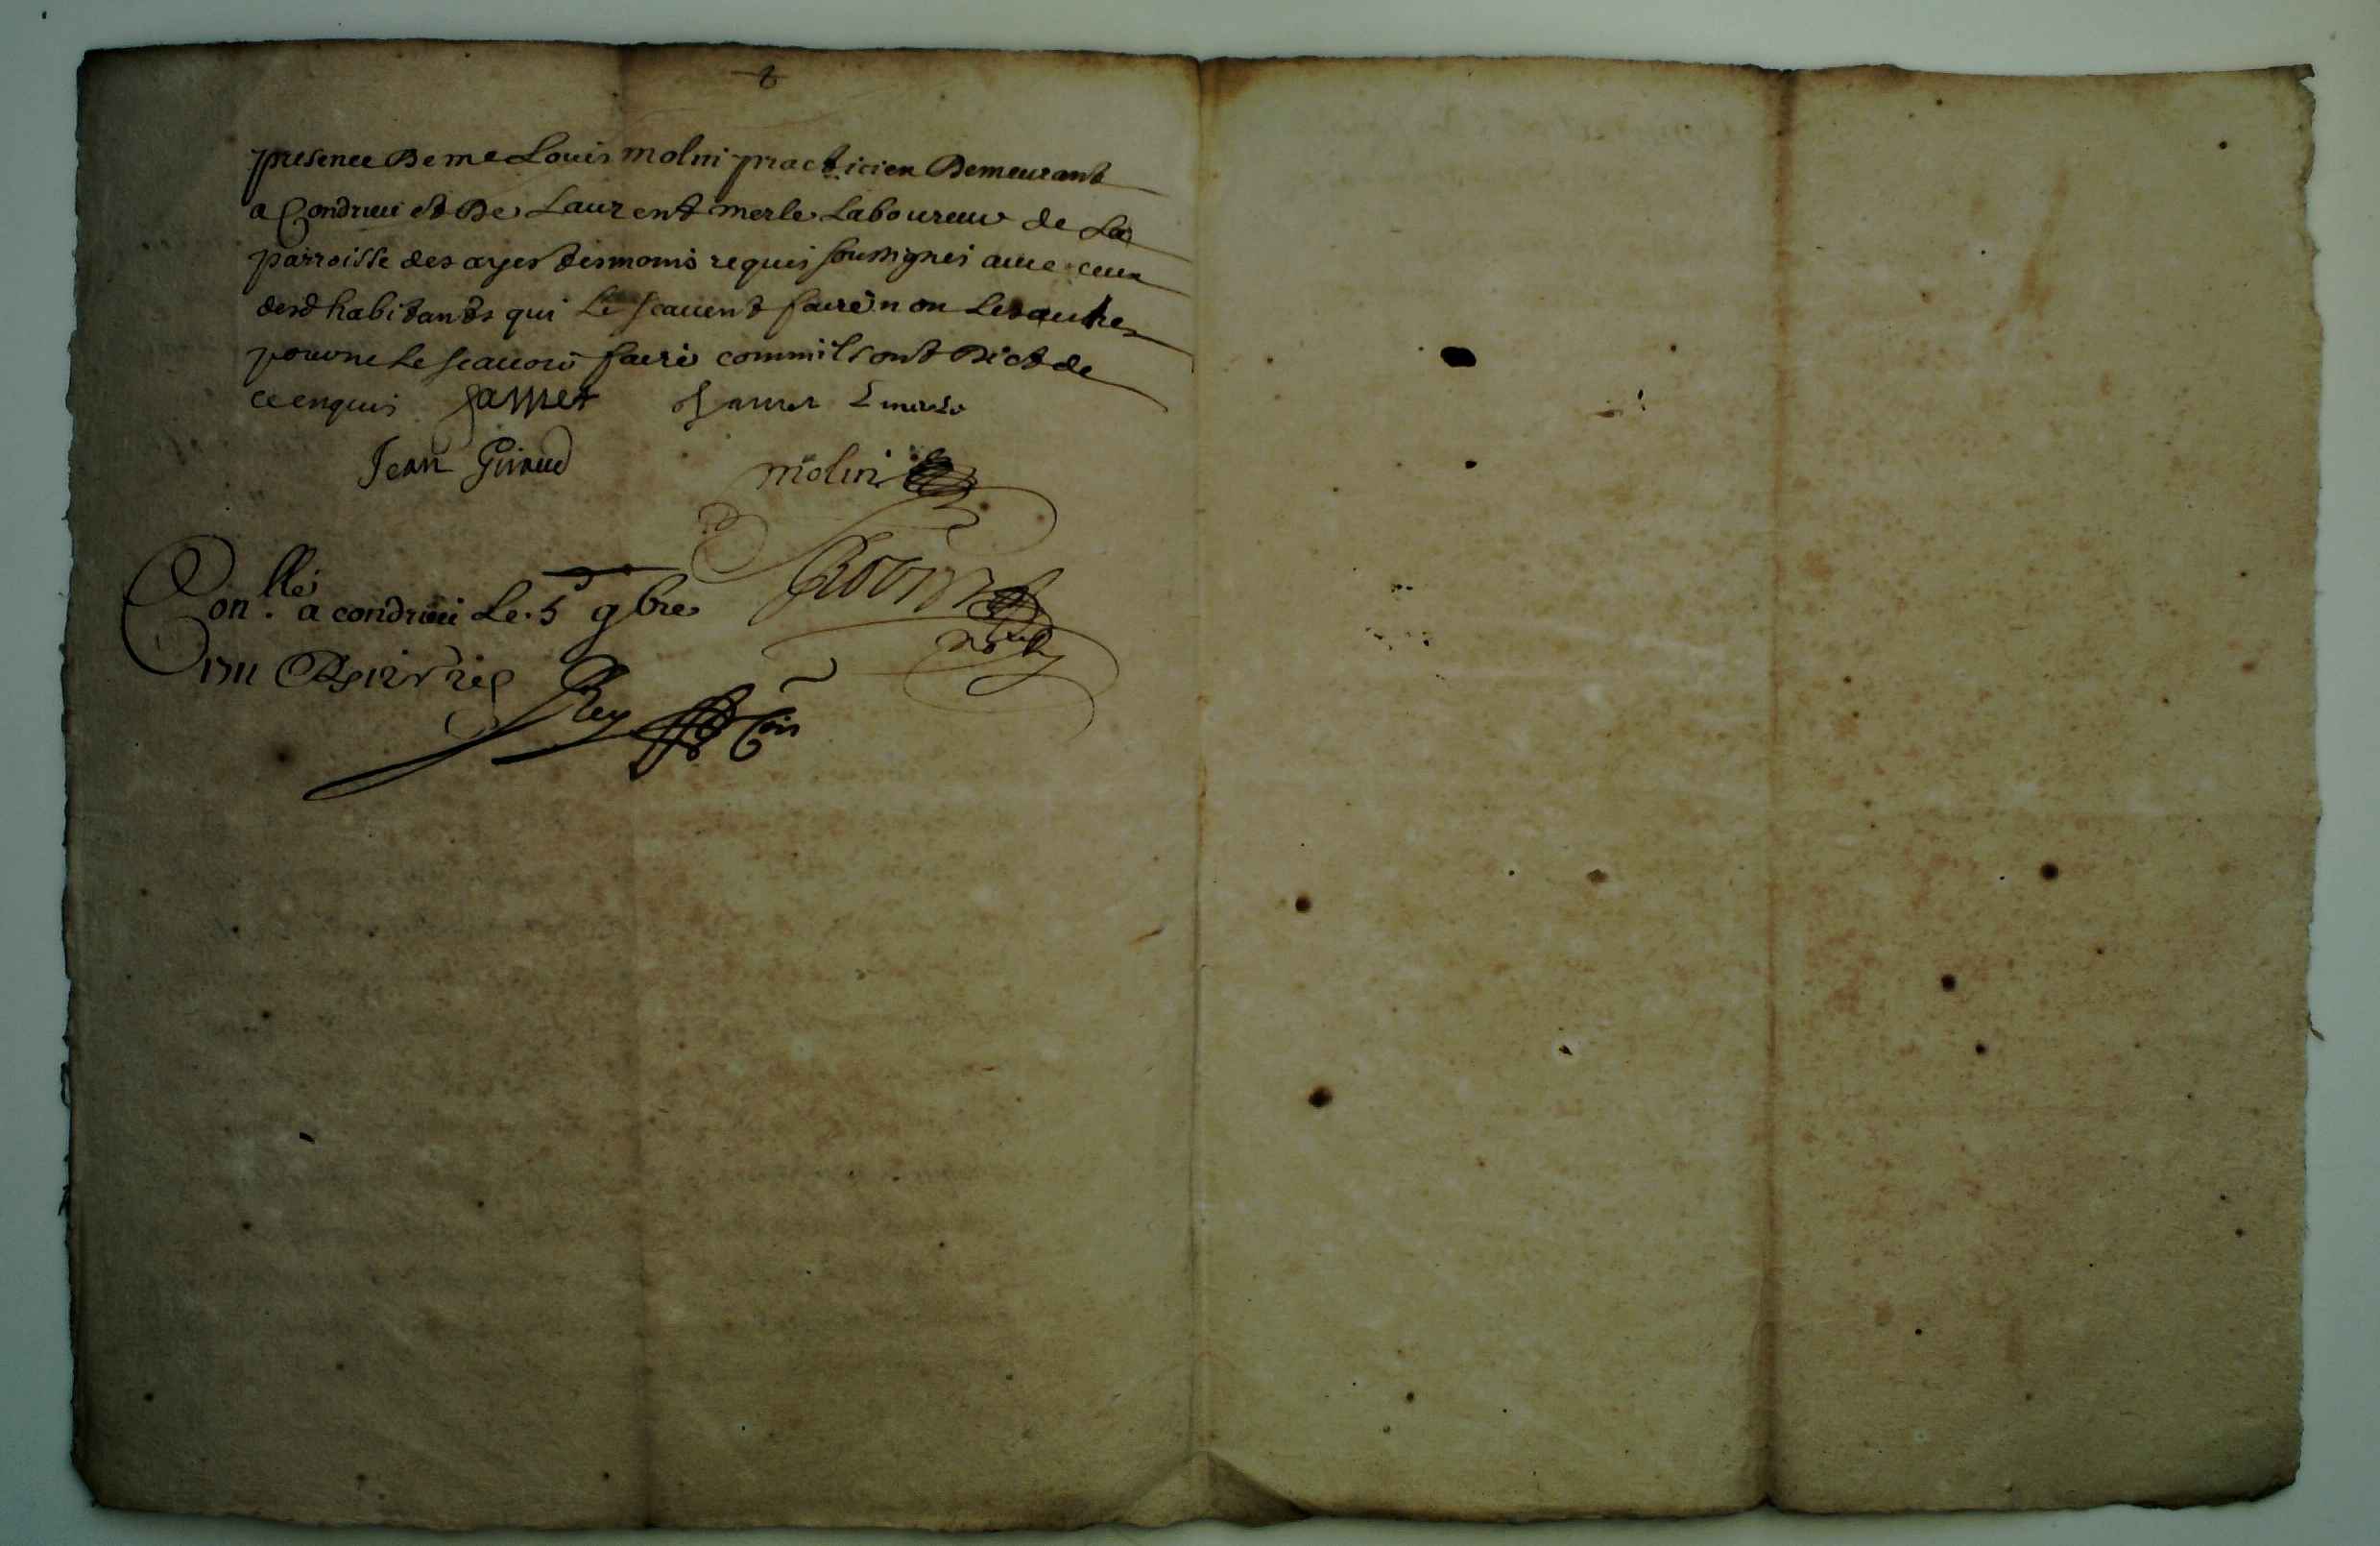 presence De me Louis molin practicien Demeurant
a Condrieu et De Laurent merle Laboureur de La
parroisse des ayes tesmoins requis soussignes avec ceux
desd habitants qui Le scavent faire non Les autres
pour ne Le scavoir faire comm ils ont Dict de
ce enquis Jamet Jamet L merle
Jean Giraud molin
Con.lle a condrieu Le 5 9bre
1711 Rey